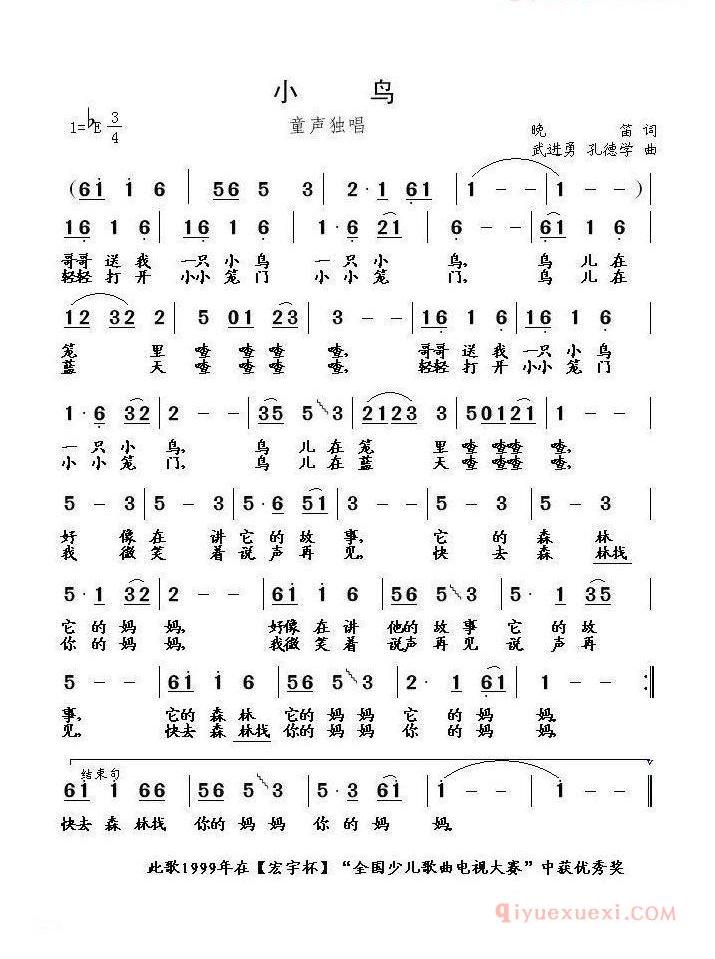 小 鸟
童声独唱
1=♭E 3/4
晚 笛 词
武进勇 孔德学 曲
( 61 1 6 | 56 5 3 | 2· 1 61 | 1 - - | 1 - - )
16 1 6 | 16 1 6 | 1· 6 21 | 6 - - | 61 1 6
哥哥送我 一只小鸟 一只小 鸟, 鸟儿在
轻轻打开 小小笼门 小小笼 门, 鸟儿在
12 32 2 | 5 01 23 | 3 - - | 16 1 6 | 16 1 6
笼 里 喳 喳喳 喳, 哥哥送我 一只小鸟
蓝 天 喳 喳喳 喳, 轻轻打开 小小笼门
1· 6 32 | 2 - - | 35 5 3 | 2123 3 | 50121 1
一只小 鸟, 鸟儿在笼 里 喳 喳喳 喳,
小小笼 门, 鸟儿在蓝 天 喳 喳喳 喳,
5 - 3 | 2 - 3 | 5· 6 51 | 3 - - | 5 - 3 | 5 - 3
好 像 在 讲 它 的 故 事, 它 的 森 林
我 微 笑 着 说 声 再 见, 快 去 森 林找
5· 1 32 | 2 - - | 61 1 6 | 56 5 3 | 5· 1 35
它 的 妈 妈, 好像在讲 他的故事 它 的 故
你 的 妈 妈, 我微笑着 说声再见 说声再
5 - - | 61 1 6 | 56 5 3 | 2· 1 61 | 1 - - :‖
事, 它的森林 它的妈妈 它 的 妈 妈.
见, 快去森林找 你的妈妈 你 的 妈 妈.
结束句
61 1 66 | 56 5 3 | 5· 3 61 | 1 - - | 1 - - ‖
快去森林找 你的妈妈 你 的 妈 妈.
此歌1999年在【宏宇杯】“全国少儿歌曲电视大赛”中获优秀奖
qiyuexuexi.COM